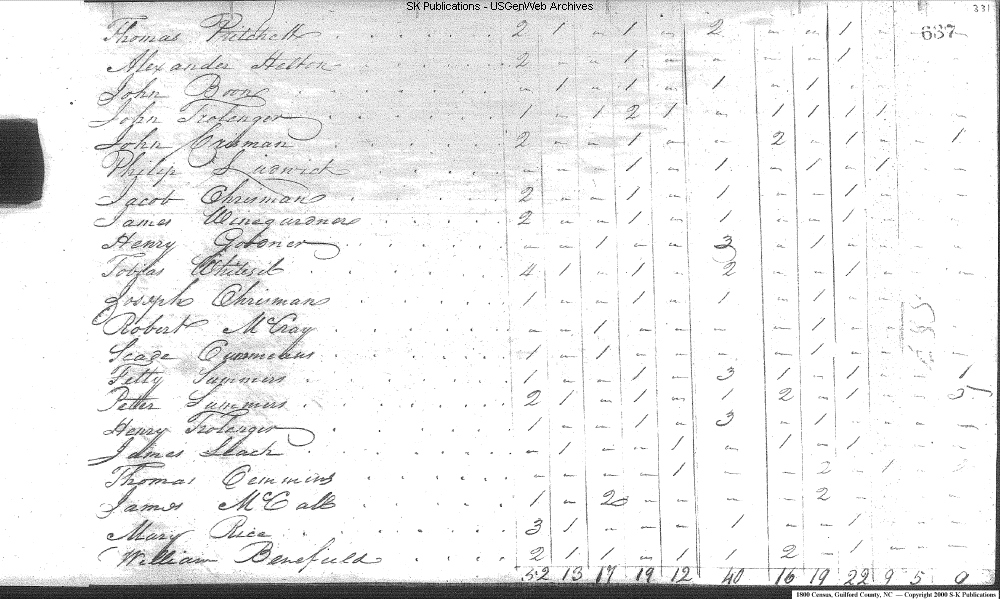 SK Publications - USGenWeb Archives
331
687
Thomas Pritchett 2 1 - 1 - 2 - - 1 - -
Alexander Helton 2 - - 1 - - - - 1
John Boon - 1 1 - 1 - 1 - 1 -
John Trolenger 1 - 1 2 1 - - 1 1 1 1
John Chrisman 2 - - 1 - - 2 - 1 - - 1
Philip Ludwick - - - 1 - 1 - 1 - 1 -
Jacob Chrisman 2 - - 1 - 1 - - 1 -
James Winegardner 2 - - 1 - 1 - - 1 -
Henry - - 1 - - 3 - 1 - -
Tobias Whitesel 4 1 - 1 - 2 - - 1 -
Joseph Chrisman 1 - - 1 - 1 - 1 - -
Robert McCray - - 1 - - - - 1 - -
1 - 1 - - - - 1 - -
Fetty Summers 1 - - 1 - 3 1 - 1 - - 1
Peter Summers 2 1 - 1 - 1 2 - 1 - -
Henry Trolenger 1 - - 1 - 3 - 1 - -
James - 1 - - 1 - 1 - 1 - -
Thomas Cummins - - - - 1 - - 2 - 1 - 2
James McCall 1 - 2 - - - - 2
Mary Rice 3 1 - - - 1 - - 1 - -
William Benefield 2 1 1 - 1 1 2 - 1 - - -
52 13 17 19 12 40 16 19 22 9 5 9
1800 Census, Guilford County, NC — Copyright 2000 S-K Publications